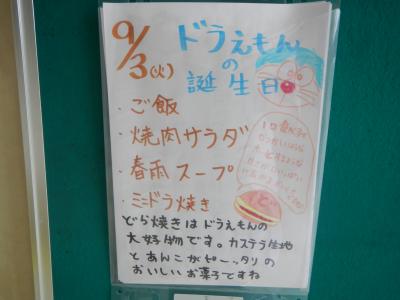 9/3(火)
ドラえもん
の
誕生日
・ご飯
・焼肉サラダ
・春雨スープ
・ミニドラ焼き
どら焼きはドラえもんの
大好物です。カステラ生地
とあんこがピーッタリの
おいしいお菓子ですね